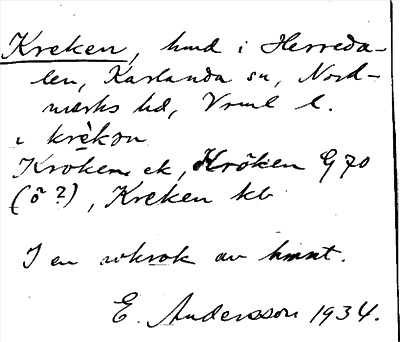 Kreken, hmd i Herreda-
len, Karlanda sn, Nord-
marks hd, Vrml l.
i krèkon
Kroken ek, Kröken G 70
(ö ?), Kreken kb
I en krok av hmnt.
E. Andersson 1934.